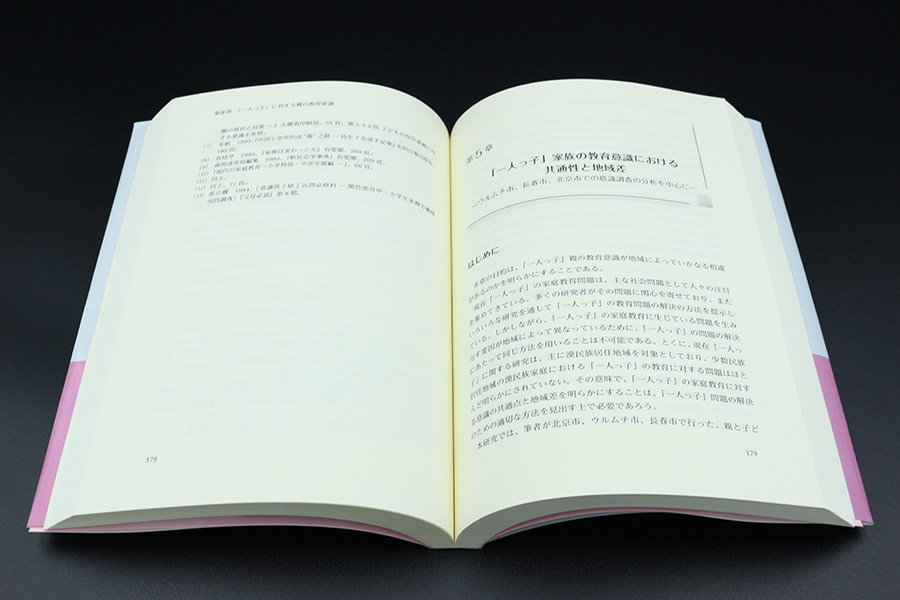 第Ⅱ部 「一人っ子」に対する親の教育意識
親の現状と対策―』大蔵省印刷局、53頁。第1-3-2図 子どもの存在意義に対
する意識を参照。
182頁。
(8) 有地亨 1993、『家族は変わったか』有斐閣、269頁。
(9) 森岡清美他編集 1993、『新社会学事典』有斐閣、200頁。
(10) 『現代の家庭教育―小学校低・中学年期編―』、66頁。
(11) 同上。
(12) 同上、77頁。
的調査」『父母必読』第8期。
178
第5章
「一人っ子」家族の教育意識における
共通性と地域差
―ウルムチ市、長春市、北京市での意識調査の分析を中心に―
はじめに
本章の目的は、「一人っ子」親の教育意識が地域によっていかなる相違
があるのかを明らかにすることである。
現在「一人っ子」の家庭教育問題は、主な社会問題として人々の注目
を集めてきている。多くの研究者がその問題に関心を寄せており、また
いろいろな研究を通して「一人っ子」の教育問題の解決の方法を提示し
ている。しかしながら、「一人っ子」の家庭教育に生じている問題を生み
出す要因が地域によって異なっているために、「一人っ子」の問題の解決
にあたって同じ方法を用いることは不可能である。とくに、現在「一人っ
子」に関する研究は、主に漢民族居住地域を対象としており、少数民族
居住地域の漢民族家庭における「一人っ子」の教育に対する問題はほと
んど明らかにされていない。その意味で、「一人っ子」の家庭教育に対す
る意識の共通点と地域差を明らかにすることは、「一人っ子」問題の解決
のための適切な方法を見出す上で必要であろう。
本研究では、筆者が北京市、ウルムチ市、長春市で行った、親と子ど
179